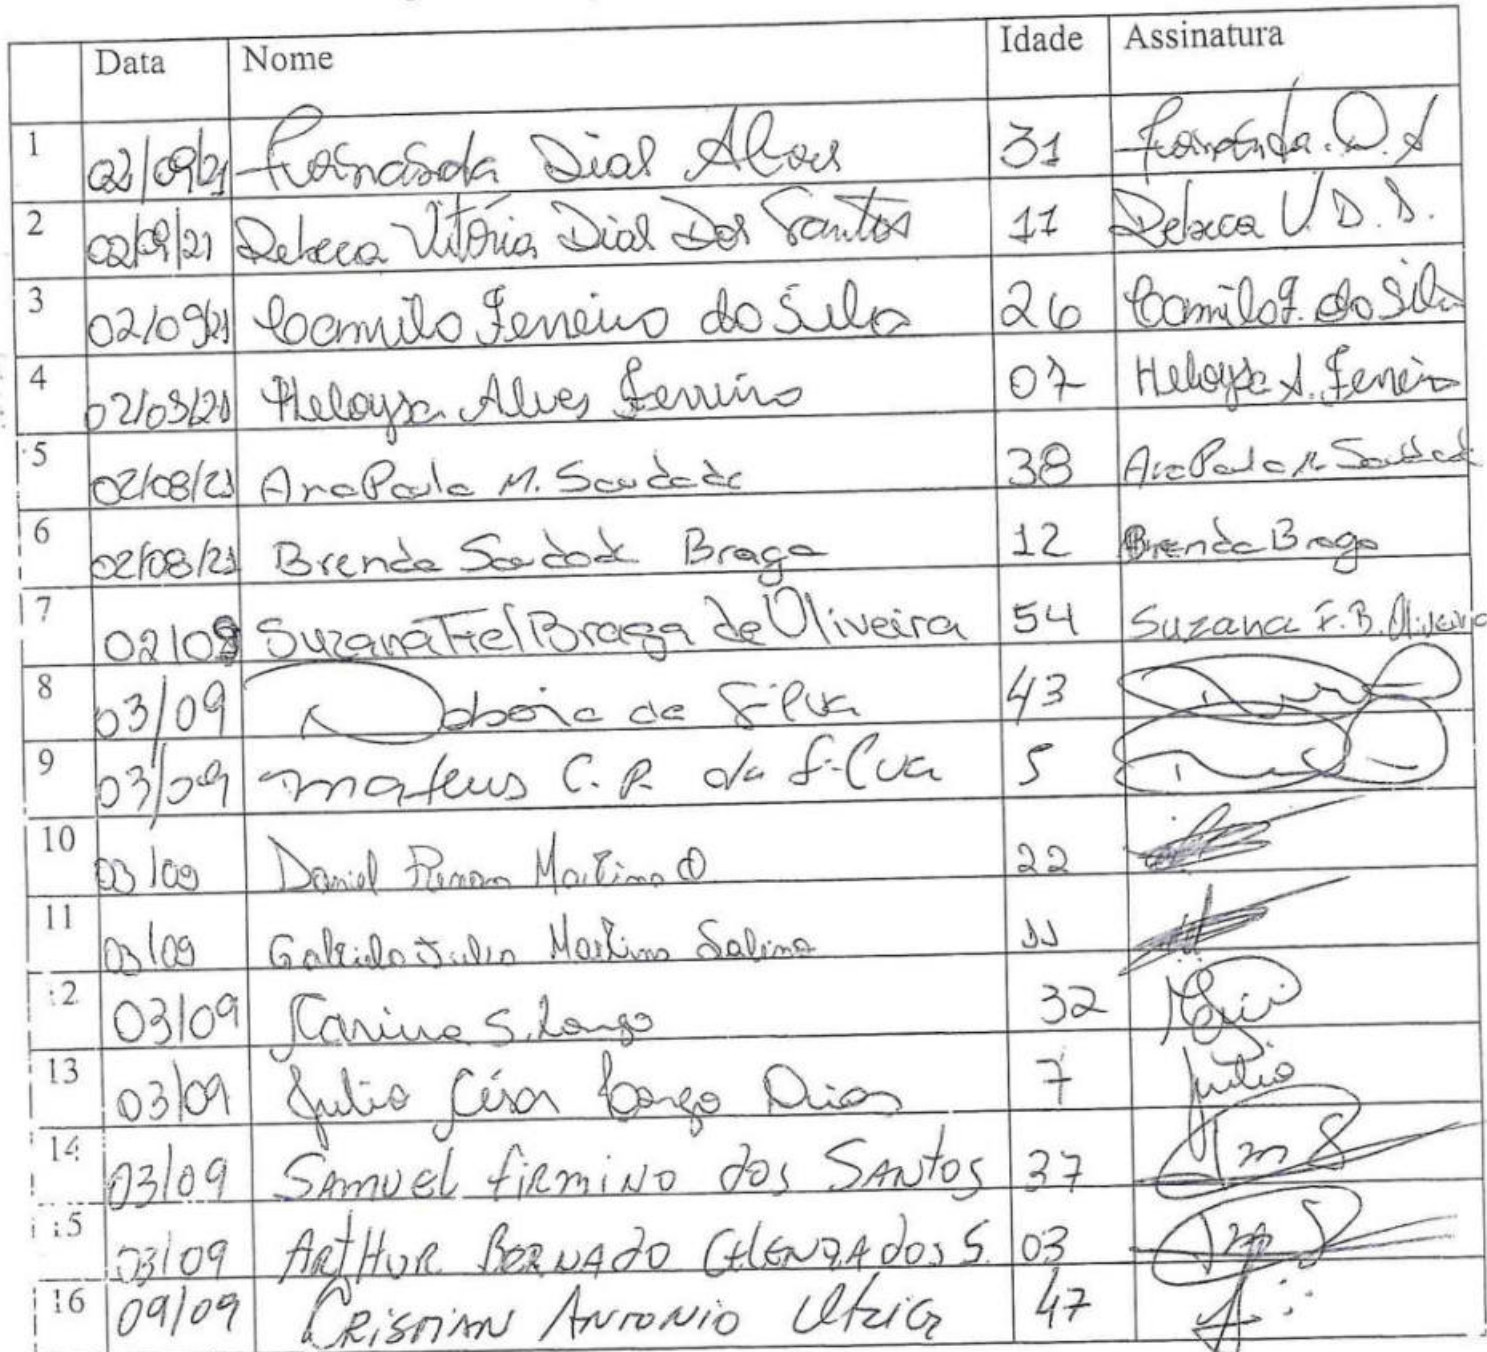 Data Nome Idade Assinatura
1 02/09/21 Fernanda Dial Alves 31 Fernanda. D. A
2 02/09/21 Rebeca Vitória Dial Dos Santos 11 Rebeca V. D. S.
3 02/09/21 Camila Ferreira da Silva 26 Camila F. da Silva
4 02/09/21 Heloysa Alves Ferreira 07 Heloysa A. Ferreira
5 02/08/21 Ana Paula M. Saudade 38 Ana Paula M. Saudade
6 02/08/21 Brenda Saudade Braga 12 Brenda Braga
7 02/09 Suzana Fiel Braga de Oliveira 54 Suzana F. B. Oliveira
8 03/09 da Silva 43
9 03/09 Mateus C. R. da Silva 5
10 03/09 Daniel Renan Martins 22
11 03/09 Gabriela Julia Martins Salina 11
12 03/09 Karine S. Longo 32
13 03/09 Julio César Longo Dias 7 Julio
14 03/09 SAMUEL FIRMINO dos SANTOS 37
15 03/09 ARTHUR BERNADO dos S. 03
16 09/09 CRISTIAN ANTONIO Utzig 47